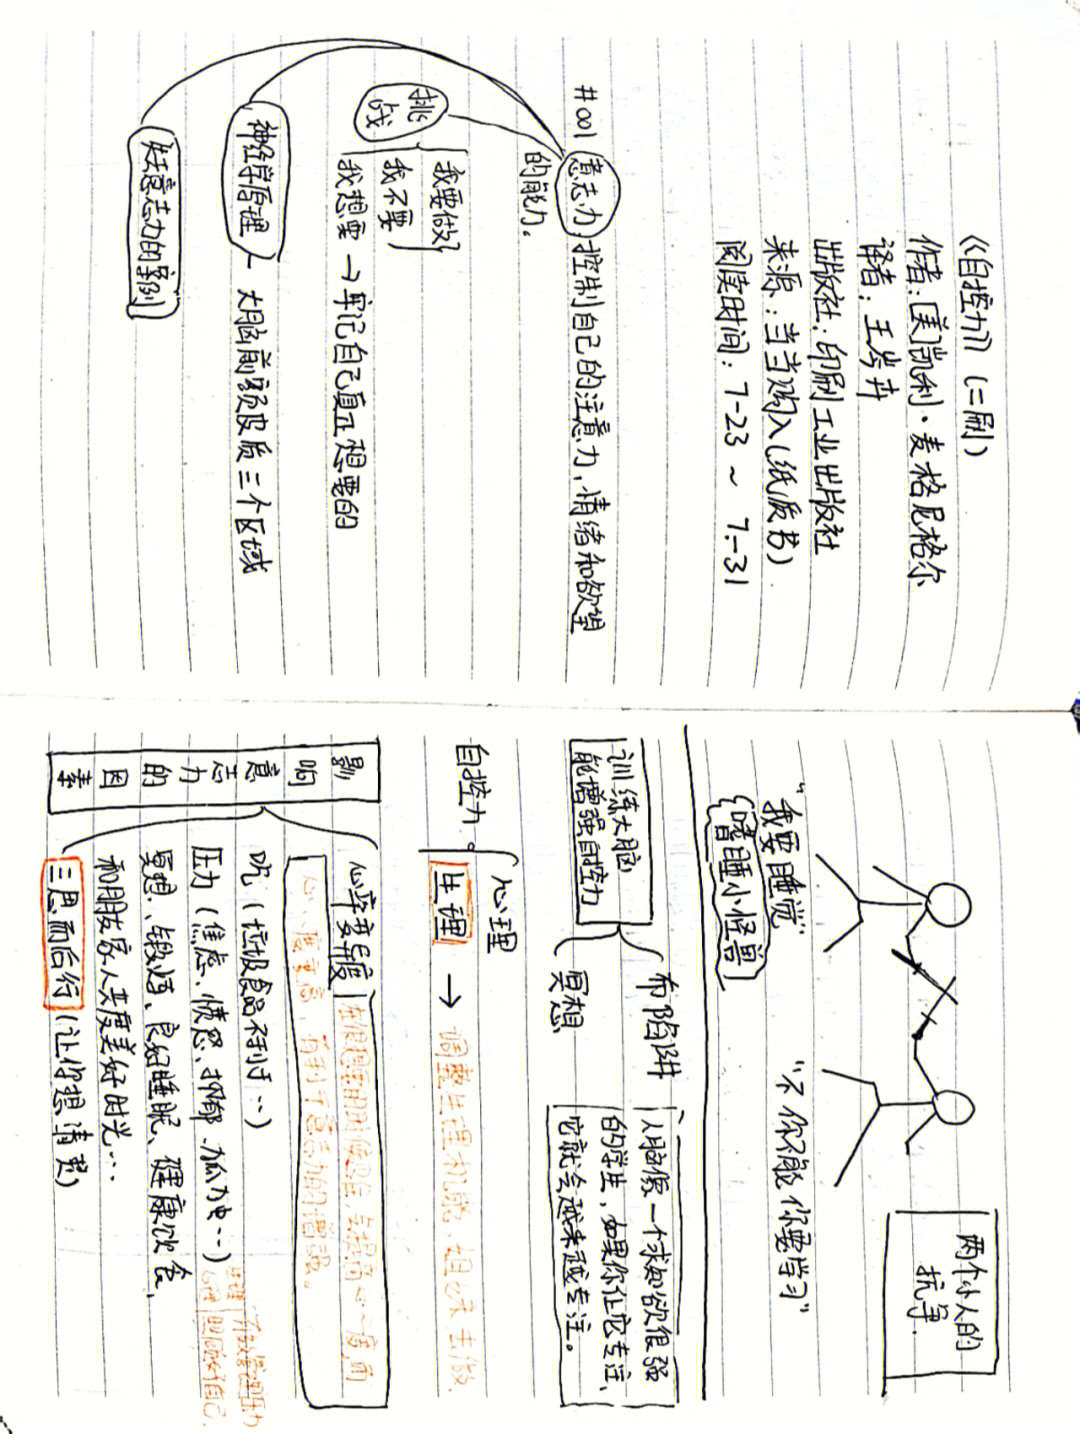 《自控力》（二刷）
作者：[美]凯利·麦格尼格尔
译者：王岑卉
出版社：印刷工业出版社
来源：当当购入（纸质书）
阅读时间：7-23 ~ 7-31
#001 意志力 控制自己的注意力，情绪和欲望
的能力。
挑战
我要做
我不要
我想要 → 牢记自己真正想要的
神经学原理
大脑前额皮质三个区域
失去意志力的案例
两个小人的
抗争
“我要睡觉”
“不 你不能 你要学习”
嗜睡小怪兽
训练大脑
能增强自控力
布陷阱
冥想
人脑像一个求知欲很强
的学生，如果你让它专注，
它就会越来越专注。
自控力
心理
生理 → 调整生理机能
去做
影响意志力的因素
心率变异度
有利于意志力的增强。
吃（垃圾食品不利于…）
压力（焦虑、愤怒、抑郁、孤独…）
生理
心理
有效管理压力
照顾好自己
冥想、锻炼、良好睡眠、健康饮食、
和朋友家人共度美好时光…
三思而后行（让你想清楚）